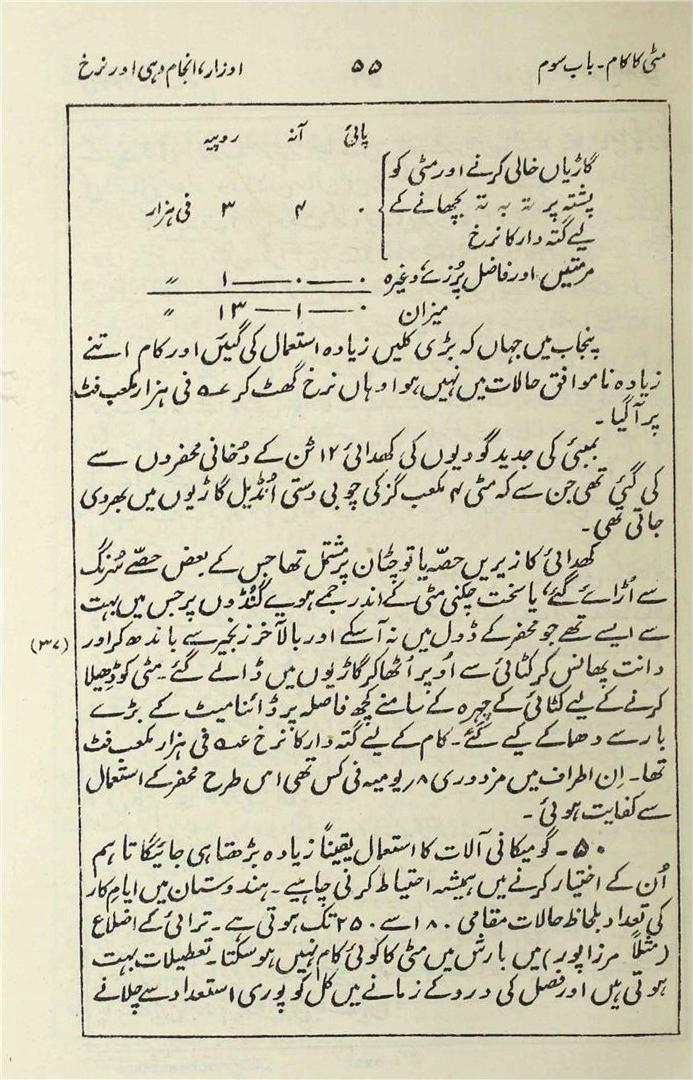 مٹی کا کام۔ باب سوم ۵۵ اوزار، انجام دہی اور نرخ
پائی آنہ روپیہ
گاڑیاں خالی کرنے اور مٹی کو
پشتہ پر تہ بہ تہ بچھانے کے ۰ ۴ ۳ فی ہزار
لیے گتہ دار کا نرخ
مرمتیں اور فاضل پُرزے، وغیرہ ۰ — ۰ — ۱ 〃
میزان ۰ — ۱ — ۱۳ 〃
پنجاب میں جہاں کہ بڑی کلیں زیادہ استعمال کی گئیں اور کام اتنے
زیادہ ناموافق حالات میں نہیں ہوا وہاں نرخ گھٹ کر فی ہزار مکعب فٹ
پر آگیا۔
بمبئی کی جدید گودیوں کی کھدائی ۱۲ ٹن کے دُخانی محفروں سے
کی گئی تھی جن سے کہ مٹی ۴ مکعب گز کی چوبی دستی اُنڈیل گاڑیوں میں بھر دی
جاتی تھی۔
کھدائی کا زیریں حصّہ یا تو چٹان پر مشتمل تھا جس کے بعض حصّے سُرنگ
سے اُڑائے گئے، یا سخت چکنی مٹی کے اندر جمے ہوئے گنُڈوں پر جس میں بہت
سے ایسے تھے جو محفر کے ڈول میں نہ آسکے اور بالآخر زنجیر سے باندھ کر اور
(۳۷)
دانت پھانس کر کٹائی سے اُوپر اُٹھا کر گاڑیوں میں ڈالے گئے۔ مٹی کو ڈھیلا
کرنے کے لیے کٹائی کے چہرہ کے سامنے کچھ فاصلہ پر ڈائنامیٹ کے بڑے
بار سے دھماکے کیے گئے۔ کام کے لیے گتہ دار کا نرخ فی ہزار مکعب فٹ
تھا۔ اِن اطراف میں مزدوری ۸ر یومیہ فی کس تھی اس طرح محفر کے استعمال
سے کفایت ہوئی۔
۵۰۔ گو میکانی آلات کا استعمال یقیناً زیادہ بڑھتا ہی جائیگا تاہم
اُن کے اختیار کرنے میں ہمیشہ احتیاط کرنی چاہیے۔ ہندوستان میں ایامِ کار
کی تعداد بلحاظ حالات مقامی ۱۸۰ سے ۲۵۰ تک ہوتی ہے۔ ترائی کے اضلاع
(مثلاً مرزاپور) میں بارش میں مٹی کا کوئی کام نہیں ہو سکتا۔ تعطیلات بہت
ہوتی ہیں اور فصل کی درو کے زمانے میں کل کو پوری استعداد سے چلانے